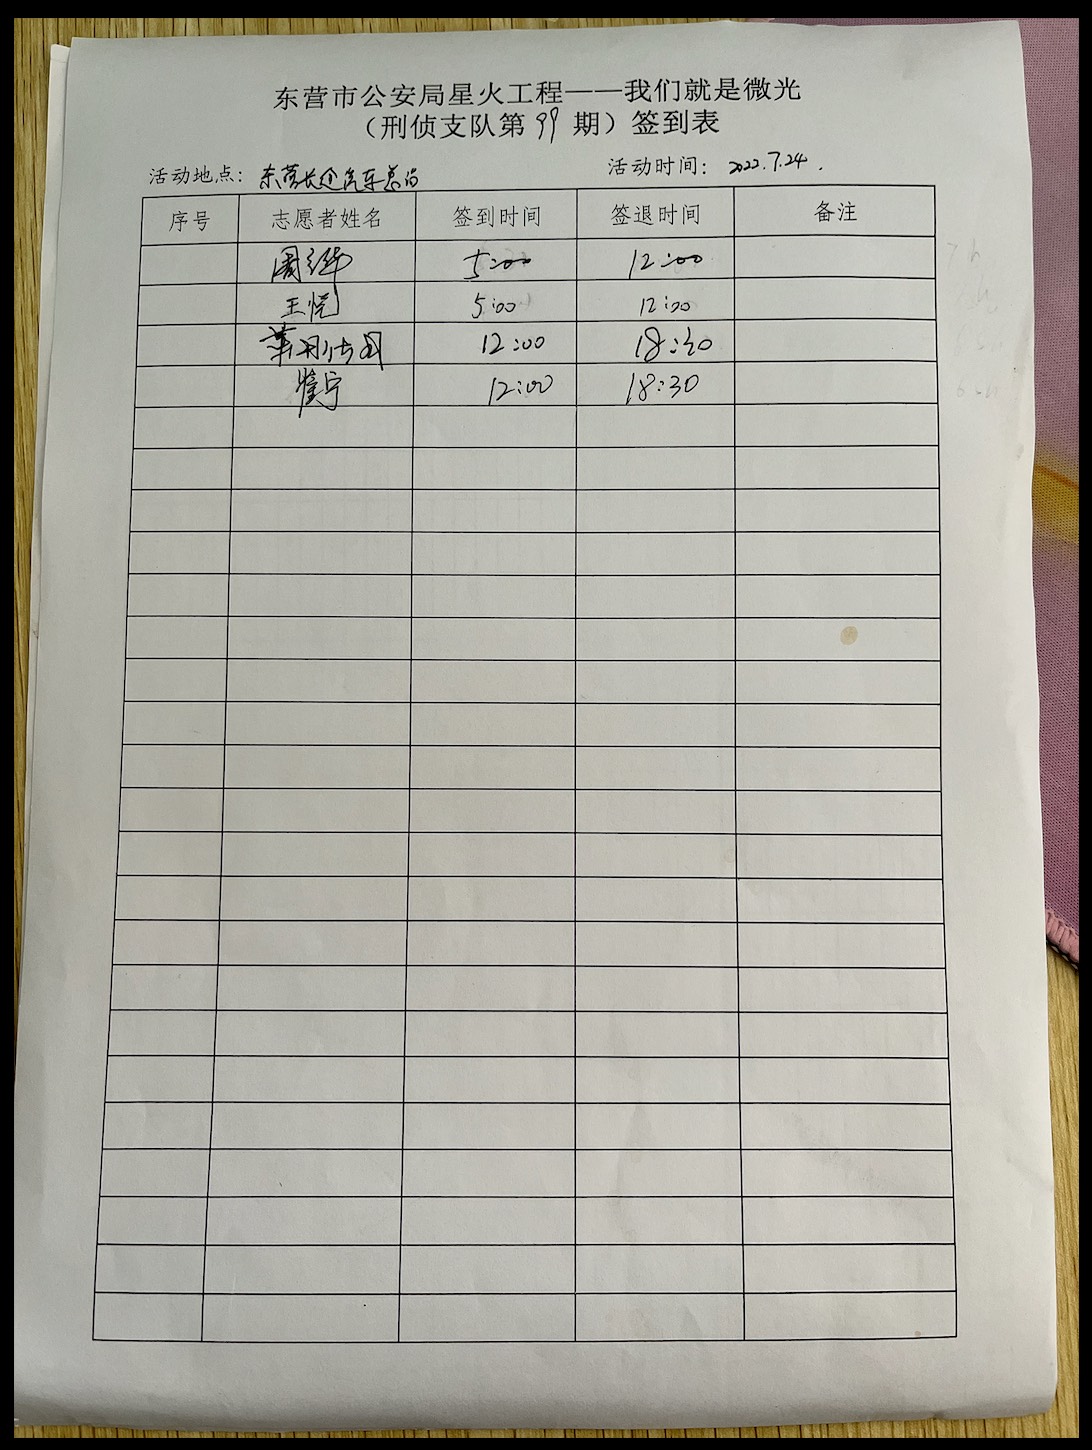 东营市公安局星火工程——我们就是微光
（刑侦支队第 99 期）签到表
活动地点：东营长途汽车总站 活动时间：2022.7.24.
序号 志愿者姓名 签到时间 签退时间 备注
5:00 12:00
王悦 5:00 12:00
12:00 18:30
崔宁 12:00 18:30